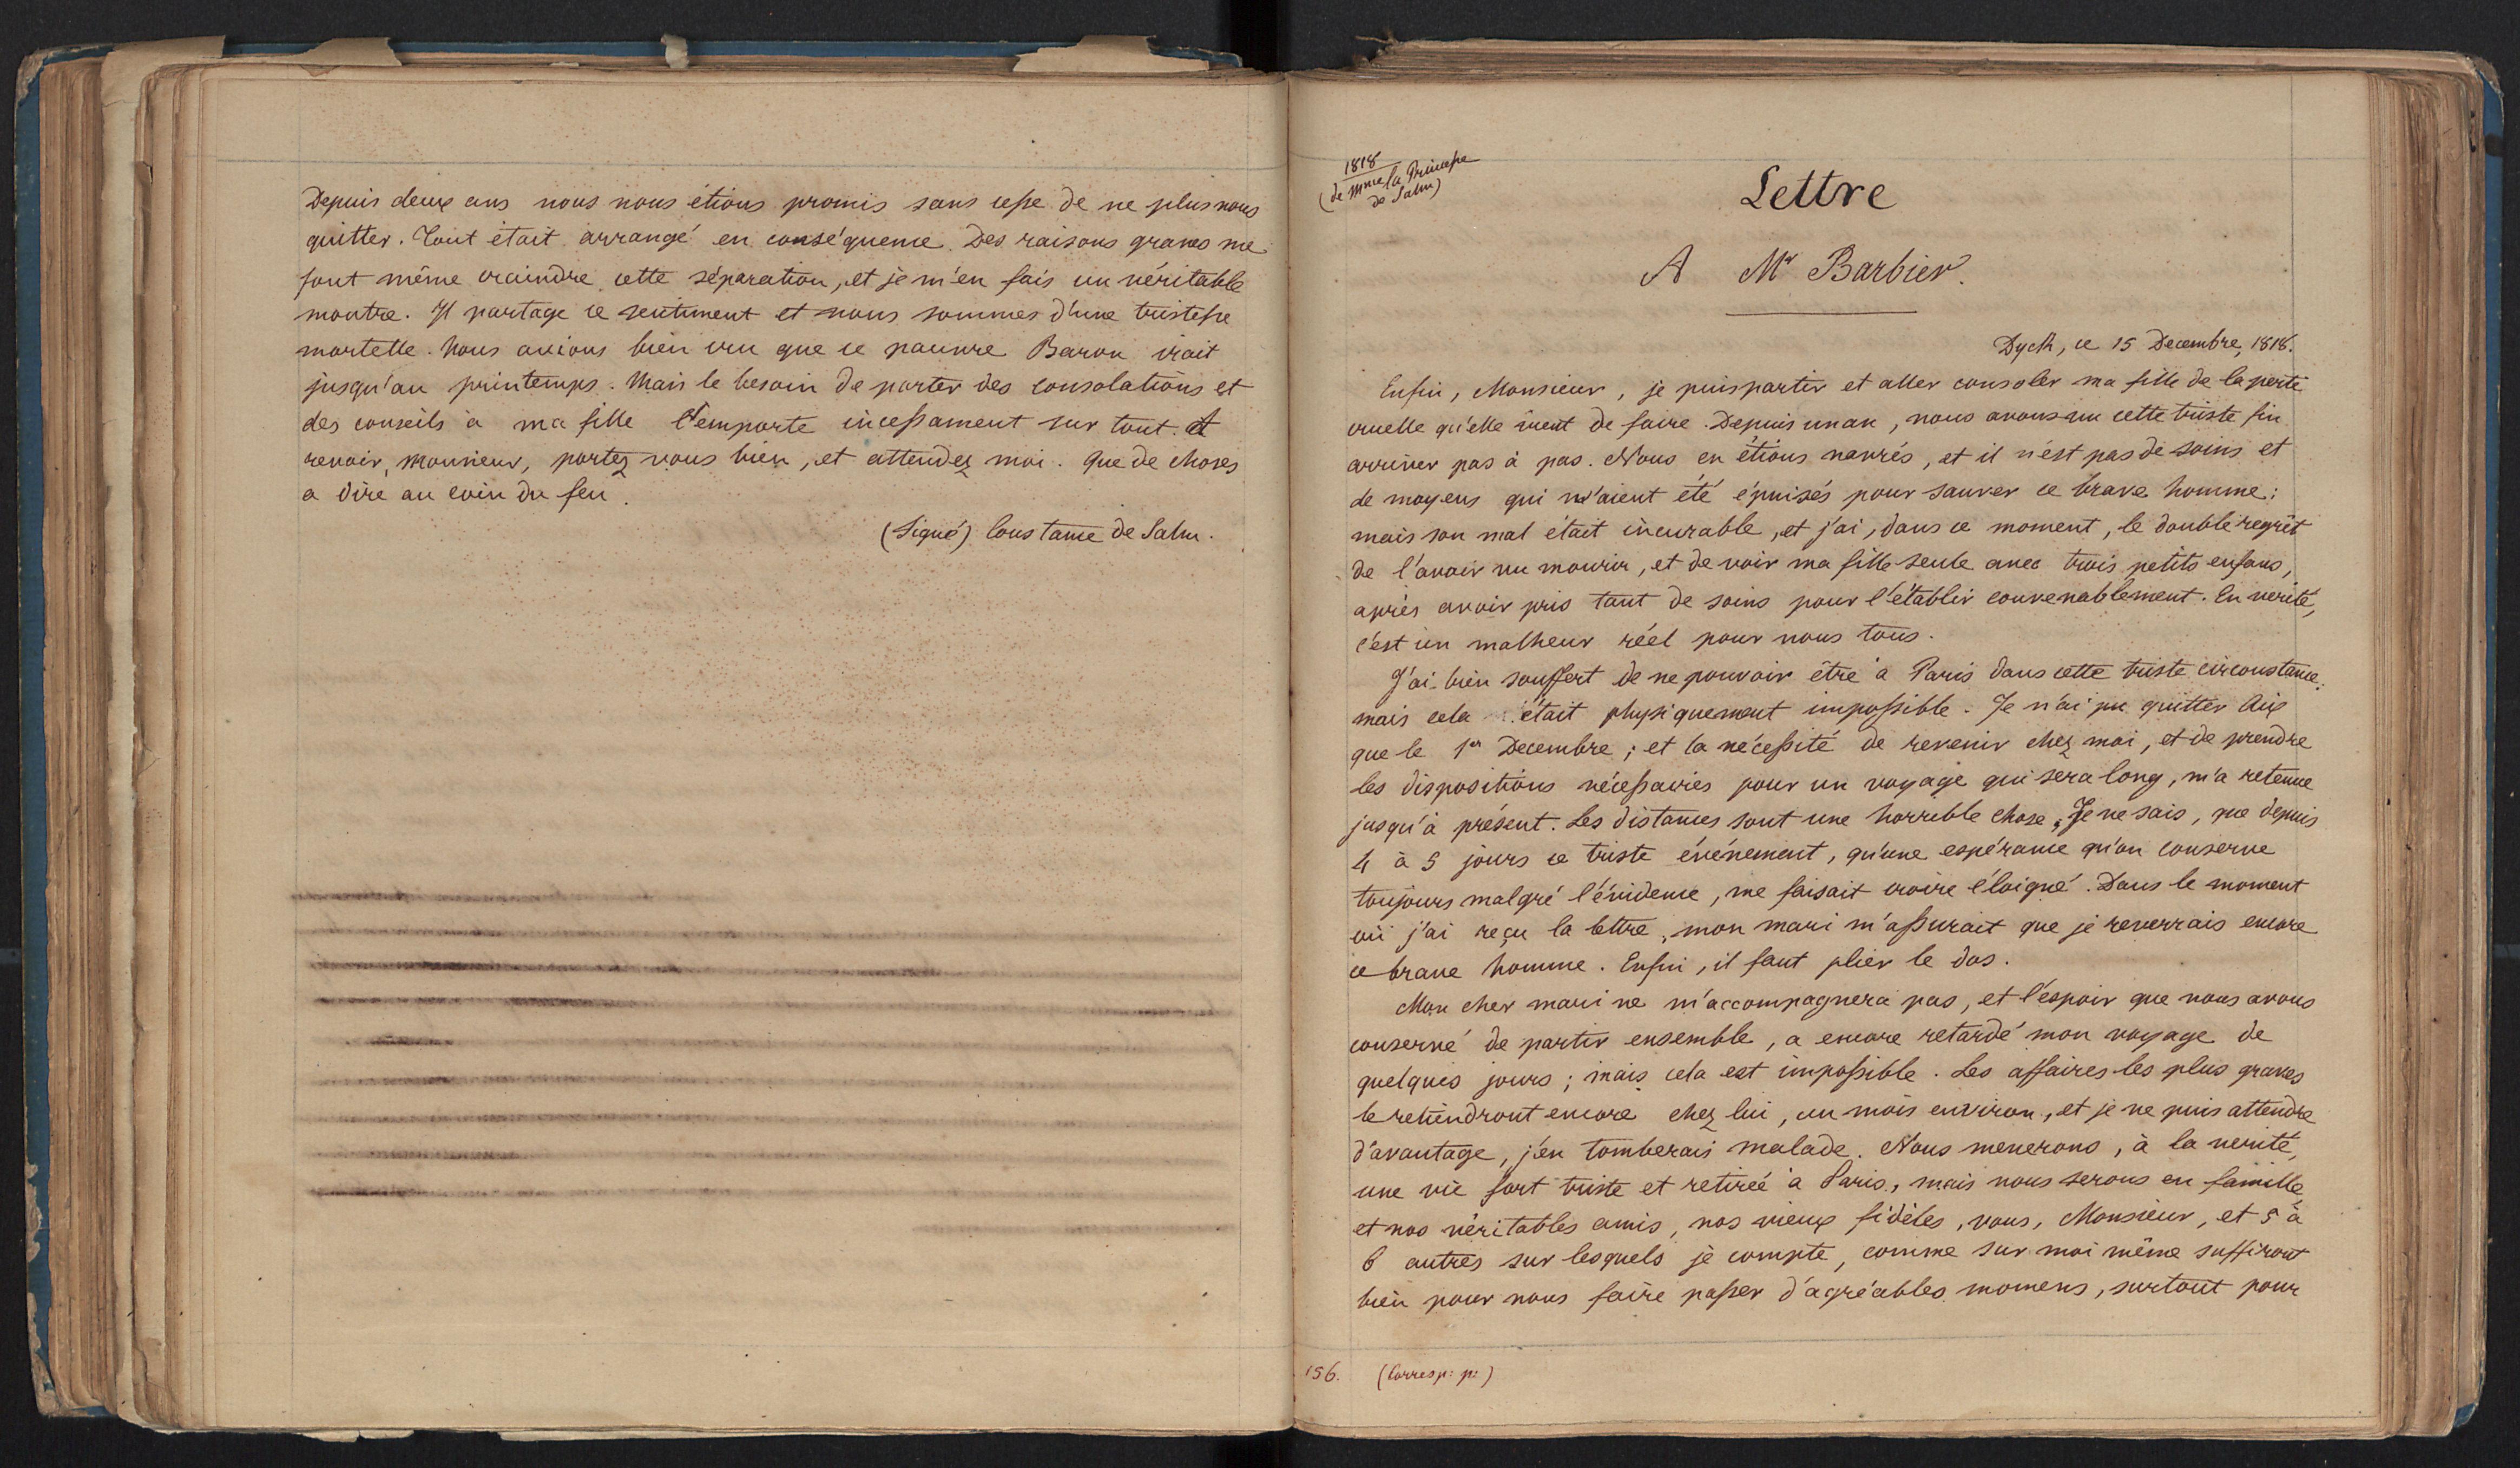 Depuis deux ans nous nous étions promis sans cesse de ne plus nous
quitter. Tout était arrangé en conséquence. Des raisons graves me
font même craindre cette séparation, et je m'en fais un véritable
montre. Il partage ce sentiment et nous sommes d'une tristesse
mortelle. Nous avions bien cru que ce pauvre Baron irait
jusqu'au printemps. Mais le besoin de porter des consolations et
des conseils à ma fille l'emporte incessament sur tout. A
revoir, Monsieur, portez vous bien, et attendez moi. Que de choses
a dire au coin du feu.
(Signé) Constance de Salm.
1818
(de Mme la Princesse
de Salm)
Lettre
A Mr Barbier.
Dyck, ce 15 Decembre, 1818.
Enfin, Monsieur, je puis partir et aller consoler ma fille de la perte
cruelle qu'elle vient de faire. Depuis un an, nous avons vu cette triste fin
arriver pas à pas. Nous en étions navrés, et il n'est pas de soins et
de moyens qui n'aient été épuisés pour sauver ce brave homme;
mais son mal était incurable, et j'ai, dans ce moment, le double regrèt
de l'avoir vu mourir, et de voir ma fille seule avec trois petits enfans,
après avoir pris tant de soins pour l'établir convenablement. En verité,
c'est un malheur réel pour nous tous.
J'ai bien souffert de ne pouvoir être à Paris dans cette triste circonstance;
mais cela était physiquement impossible. Je n'ai pu quitter Aix
que le 1er Decembre; et la nécessité de revenir chez moi, et de prendre
les dispositions nécessaires pour un voyage qui sera long, m'a retenue
jusqu'à présent. Les distances sont une horrible chose. Je ne sais, que depuis
4 à 5 jours ce triste événement, qu'une espérance qu'on conserve
toujours malgré l'évidence, me faisait croire éloigné. Dans le moment
où j'ai reçu la lettre, mon mari m'assurait que je reverrais encore
ce brave homme. Enfin, il faut plier le dos.
Mon cher mari ne m'accompagnera pas, et l'espoir que nous avons
conservé de partir ensemble, a encore retardé mon voyage de
quelques jours; mais cela est impossible. Les affaires les plus graves
le retiendront encore chez lui, un mois environ, et je ne puis attendre
d'avantage, j'en tomberais malade. Nous menerons, à la verité,
une vie fort triste et retirée à Paris, mais nous serons en famille,
et nos véritables amis, nos vieux fidèles, vous, Monsieur, et 5 à
6 autres sur lesquels je compte, comme sur moi même suffiront
bien pour nous faire passer d'agréables momens, surtout pour
156. (Corresp: p:)